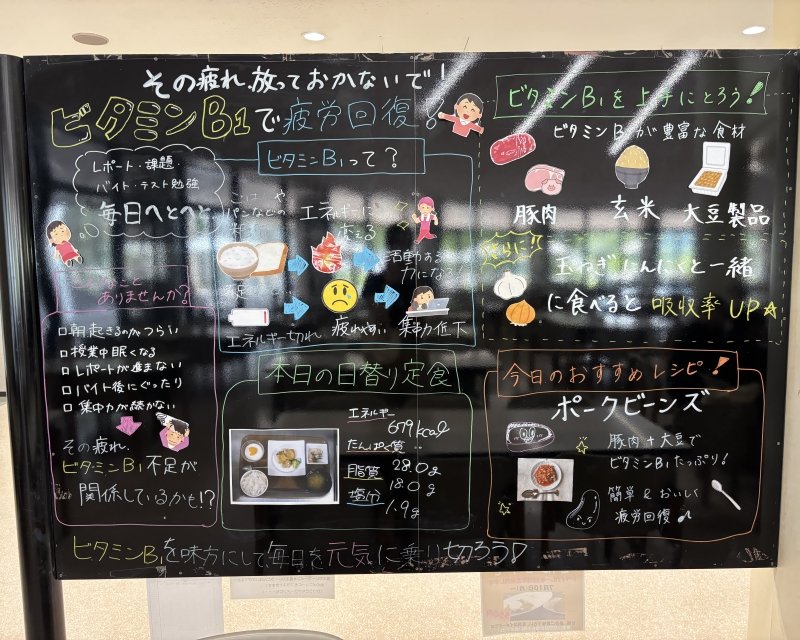 その疲れ、放っておかないで!
ビタミンB1で疲労回復!
レポート・課題
バイト・テスト勉強
毎日へとへと
こんなこと
ありませんか?
□朝起きるのがつらい
□授業中眠くなる
□レポートが進まない
□バイト後にぐったり
□集中力が続かない
その疲れ、
ビタミンB1不足が
関係しているかも!?
ビタミンB1って?
ごはんや
パンなどの
エネルギーに
変える
活動する
力になる!
不足
エネルギー切れ
疲れやすい
集中力低下
本日の日替り定食
エネルギー
679kcal
たんぱく質
28.0g
脂質
18.0g
塩分
1.9g
ビタミンB1を上手にとろう!
ビタミンB1が豊富な食材
豚肉
玄米
大豆製品
さらに!!
玉ねぎ にんにくと一緒
に食べると 吸収率UP☆
今日のおすすめレシピ!
ポークビーンズ
豚肉+大豆で
ビタミンB1たっぷり!
簡単&おいしく
疲労回復♪
ビタミンB1を味方にして毎日を元気に乗り切ろう!